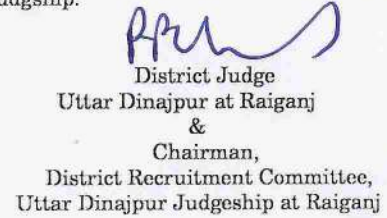 District Judge
Uttar Dinajpur at Raiganj
&
Chairman,
District Recruitment Committee,
Uttar Dinajpur Judgeship at Raiganj